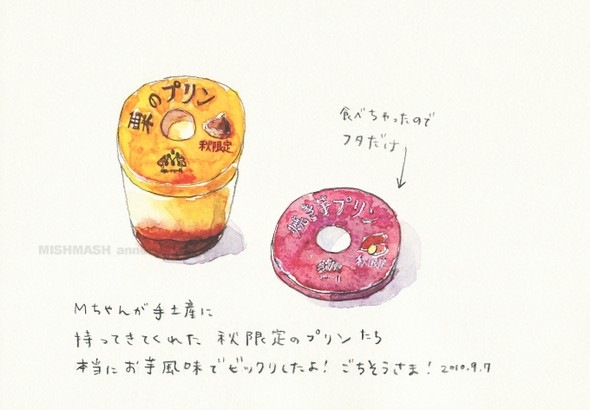 栗のプリン
秋限定
食べちゃったので
フタだけ
焼き芋プリン
秋限定
MISHMASH anne
Mちゃんが手土産に
持ってきてくれた 秋限定のプリンたち
本当にお芋風味でビックリしたよ！ごちそうさま！2010.9.7